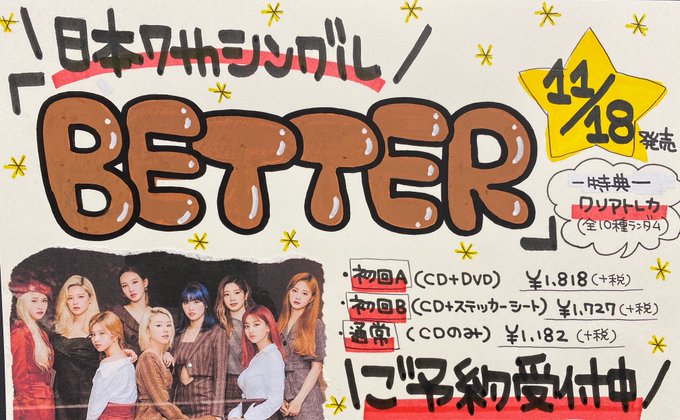 \日本7thシングル/
「BETTER」
11/18発売
ー特典ー
クリアトレカ
(全10種ランダム)
・初回A (CD+DVD) ¥1.818(+税)
・初回B (CD+ステッカーシート) ¥1.727(+税)
・通常 (CDのみ) ¥1.182 (+税)
\ご予約受付中/